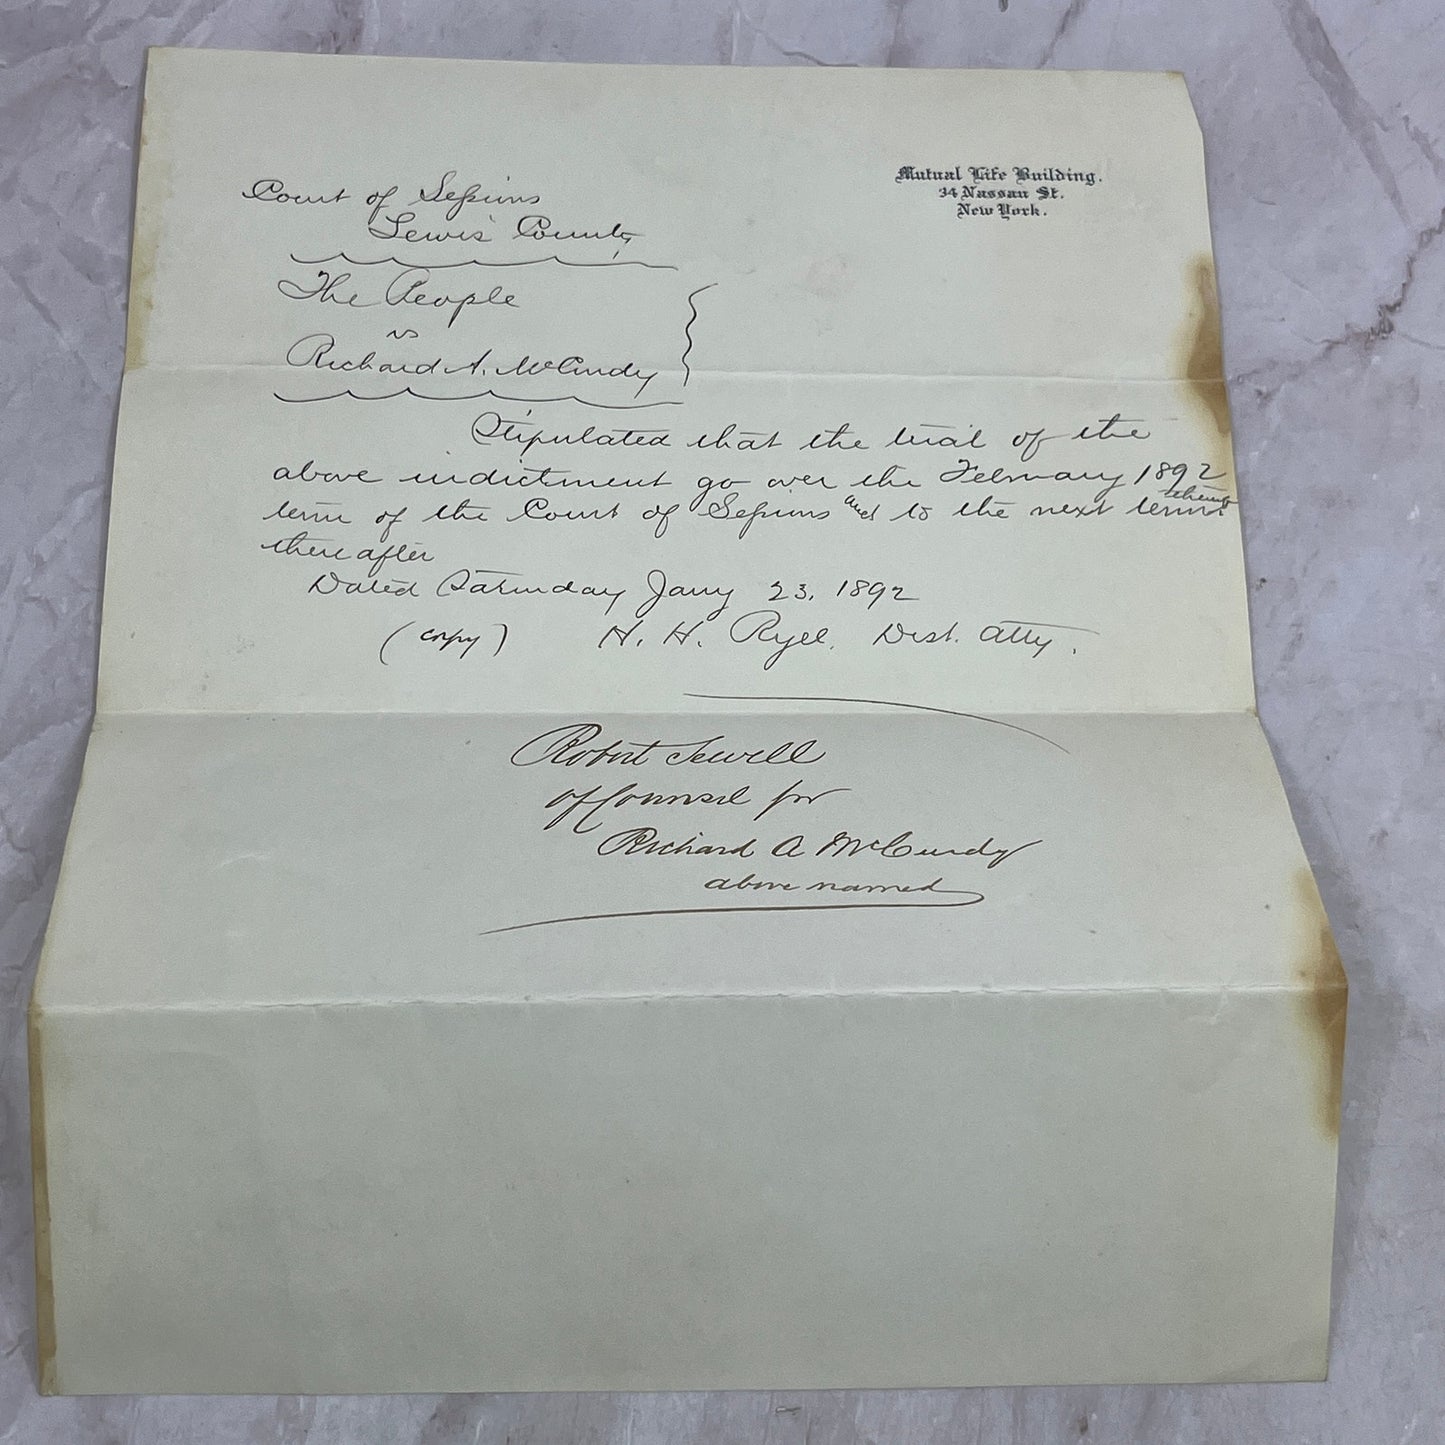 Mutual Life Building.
34 Nassau St.
New York.
Court of Sessions
Lewis County
The People
vs
Richard A. McCurdy
Stipulated that the trial of the
above indictment go over the February 1892
term of the Court of Sessions and to the next term
thereafter
Dated Saturday Jany 23, 1892
(copy) H. H. Ryel. Dist. Atty.
Robert Sewell
of Counsel for
Richard A McCurdy
above named